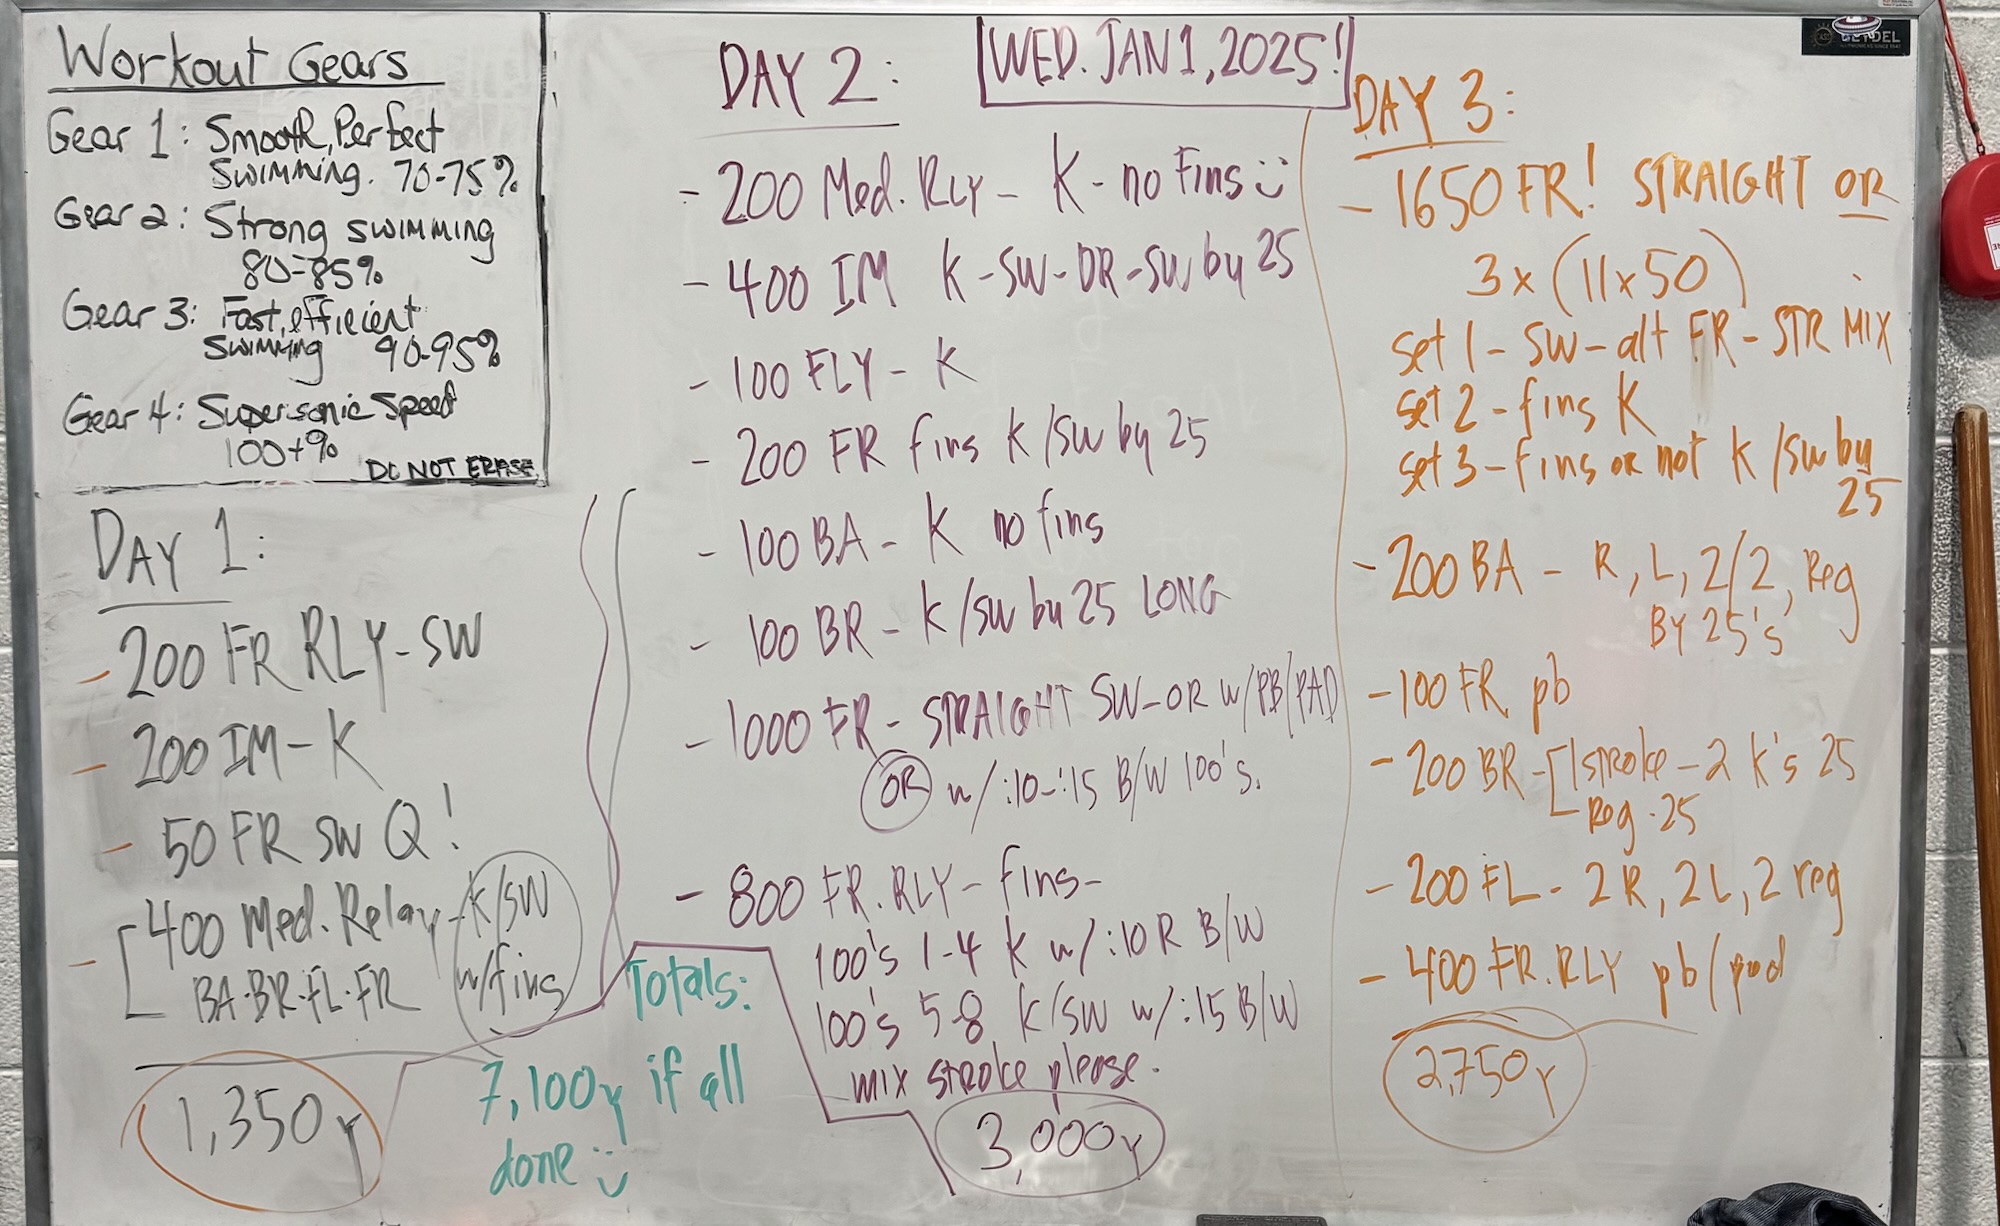 Workout Gears
Gear 1: Smooth, Perfect
Swimming. 70-75%
Gear 2: Strong swimming
80-85%
Gear 3: Fast, efficient
swimming 90-95%
Gear 4: Supersonic Speed
100+%
DO NOT ERASE
DAY 1:
- 200 FR RLY - SW
- 200 IM - K
- 50 FR SW Q!
- 400 Med. Relay - K/SW
BA·BR·FL·FR w/fins
1,350y
Totals:
7,100y if all
done
WED. JAN 1, 2025!
DAY 2:
- 200 Med. RLY - K - no Fins
- 400 IM K-SW-DR-SW by 25
- 100 FLY - K
- 200 FR fins K/SW by 25
- 100 BA - K no fins
- 100 BR - K/SW by 25 LONG
- 1000 FR - STRAIGHT SW-OR w/PB/PAD
OR w/:10-:15 B/W 100's.
- 800 FR. RLY - fins -
100's 1-4 K w/:10 R B/W
100's 5-8 K/SW w/:15 B/W
mix stroke please.
3,000y
DAY 3:
- 1650 FR! STRAIGHT OR
3x(11x50)
set 1 - SW - alt FR - STR MIX
set 2 - fins K
set 3 - fins or not K/SW by
25
- 200 BA - R, L, 2/2, Reg
BY 25's
- 100 FR pb
- 200 BR - [1 stroke - 2 K's 25
Reg · 25
- 200 FL - 2R, 2L, 2 reg
- 400 FR. RLY pb/pad
2,750y